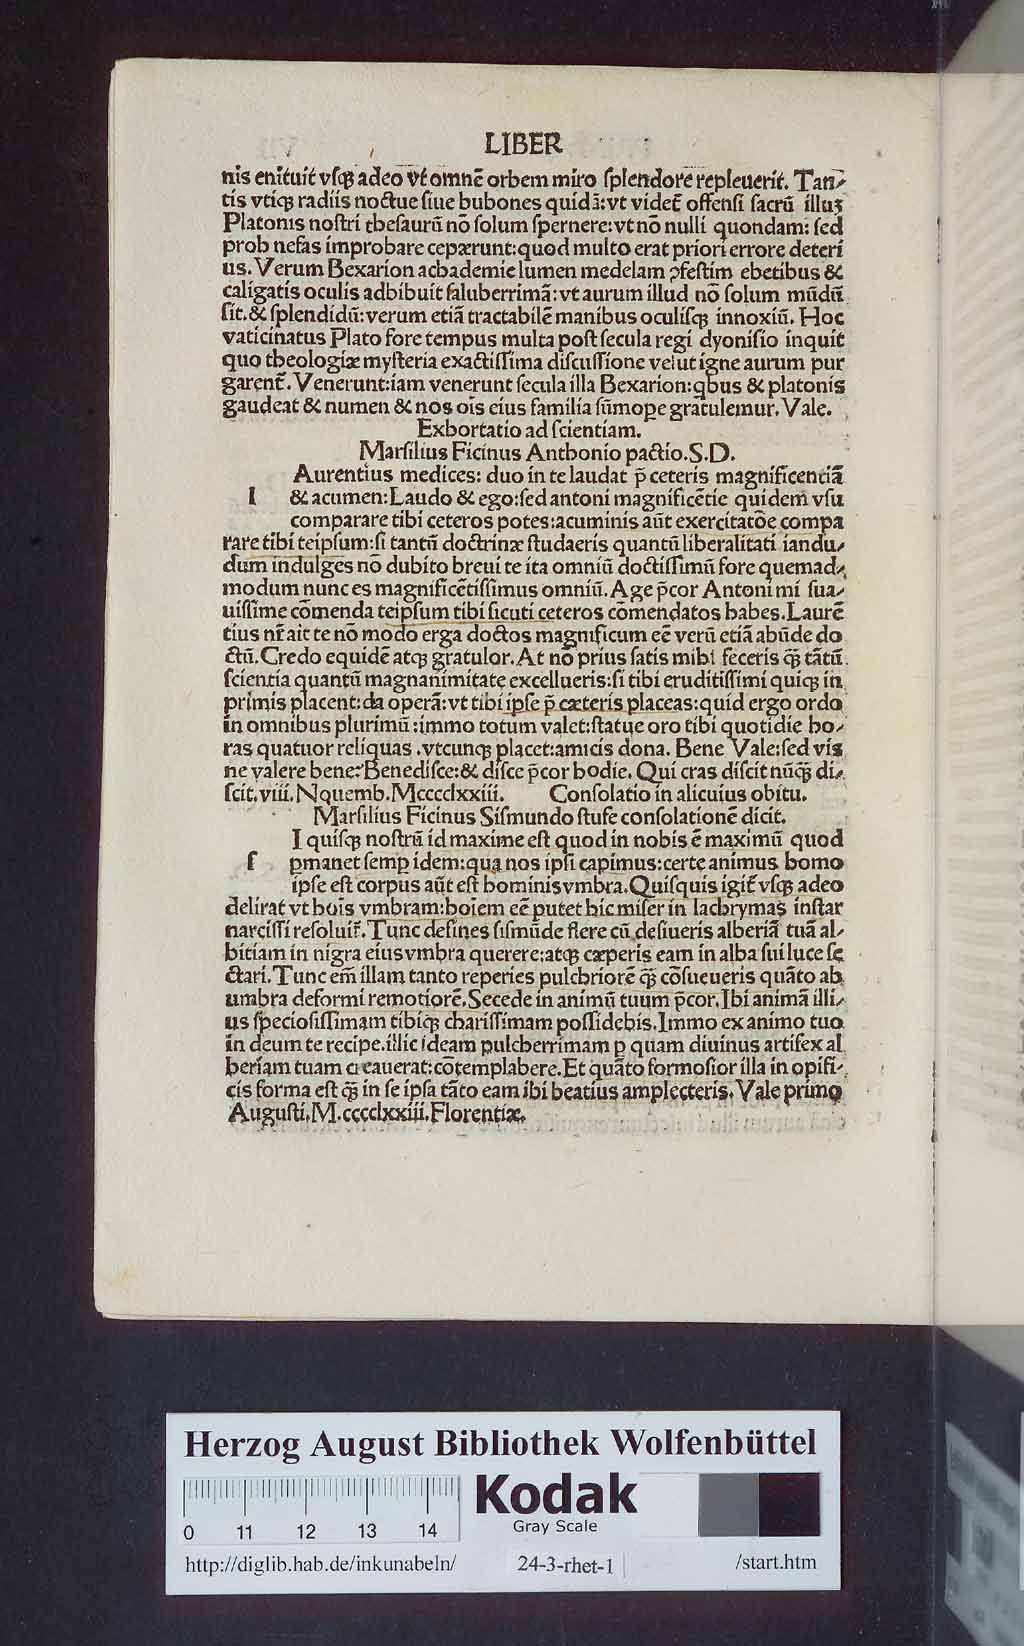 LIBER
nis enituit vsqꝫ adeo vt omnē orbem miro splendore repleuerit. Tan-
tis vtiqꝫ radiis noctue siue bubones quidā: vt videt̄ offensi sacrū illuꝫ
Platonis nostri thesaurū nō solum spernere: vt nō nulli quondam: sed
proh nefas improbare cepærunt: quod multo erat priori errore deteri
us. Verum Bexarion achademie lumen medelam ꝯfestim ebetibus &
caligatis oculis adhibuit saluberrimā: vt aurum illud nō solum mūdū
sit. & splendidū: verum etiā tractabilē manibus oculisqꝫ innoxiū. Hoc
vaticinatus Plato fore tempus multa post secula regi dyonisio inquit
quo theologiæ mysteria exactissima discussione velut igne aurum pur
garent̄. Venerunt: iam venerunt secula illa Bexarion: qbus & platonis
gaudeat & numen & nos oīs eius familia sūmope gratulemur. Vale.
Exhortatio ad scientiam.
Marsilius Ficinus Anthonio pactio. S. D.
Aurentius medices: duo in te laudat p̄ ceteris magnificentiā
l & acumen: Laudo & ego: sed antoni magnificētie quidem vsu
comparare tibi ceteros potes: acuminis aūt exercitatōe compa
rare tibi teipsum: si tantū doctrinæ studaeris quantū liberalitati iandu-
dum indulges nō dubito breui te ita omniū doctissimū fore quemad-
modum nunc es magnificētissimus omniū. Age p̄cor Antoni mi sua-
uissime cōmenda teipsum tibi sicuti ceteros cōmendatos habes. Laurē
tius nr̄ ait te nō modo erga doctos magnificum eē verū etiā abūde do
ctū. Credo equidē atqꝫ gratulor. At nō prius satis mihi feceris qꝫ̄ tātū
scientia quantū magnanimitate excellueris: si tibi eruditissimi quiqꝫ in
primis placent: da operā: vt tibi ipse p̄ cæteris placeas: quid ergo ordo
in omnibus plurimū: immo totum valet: statue oro tibi quotidie ho-
ras quatuor reliquas. vtcunqꝫ placet: amicis dona. Bene Vale: sed vis
ne valere bene? Benedisce: & disce p̄cor hodie. Qui cras discit nūqꝫ̄ di-
scit. viii. Nouemb. Mccccclxxiii. Consolatio in alicuius obitu.
Marsilius Ficinus Sismundo stufe consolationē dicit.
I quisqꝫ nostrū id maxime est quod in nobis ē maximū quod
s pmanet semp idem: qua nos ipsi capimus: certe animus homo
ipse est corpus aūt est hominis vmbra. Quisquis igit̄ vsqꝫ adeo
delirat vt hoīs vmbram: hoīem eē putet hic miser in lachrymas instar
narcissi resoluit̄. Tunc desines sismūde flere cū desiueris alberiā tuā al-
bitiam in nigra eius vmbra querere: atqꝫ cæperis eam in alba sui luce se
ctari. Tunc em̄ illam tanto reperies pulchriorē qꝫ̄ cōsueueris quāto ab
umbra deformi remotiorē. Secede in animū tuum p̄cor. Ibi animā illi-
us speciosissimam tibiqꝫ charissimam possidebis. Immo ex animo tuo
in deum te recipe. illic ideam pulcherrimam p quam diuinus artifex al
beriam tuam creauerat: cōtemplabere. Et quāto formosior illa in opifi-
cis forma est qꝫ̄ in se ipsa tāto eam ibi beatius amplecteris. Vale primo
Augusti. M. cccclxxiii. Florentiæ.
Herzog August Bibliothek Wolfenbüttel
Kodak
Gray Scale
0 11 12 13 14
http://diglib.hab.de/inkunabeln/ 24-3-rhet-1 /start.htm